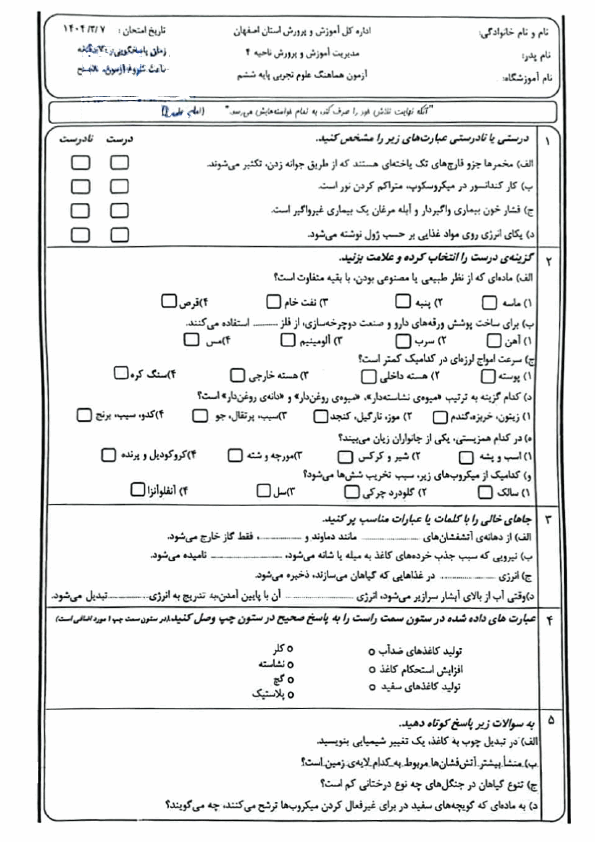 نام و نام خانوادگی:
نام پدر:
نام آموزشگاه:
اداره کل آموزش و پرورش استان اصفهان
مدیریت آموزش و پرورش ناحیه ۴
آزمون هماهنگ علوم تجربی پایه ششم
تاریخ امتحان: ۱۴۰۴/۳/۷
زمان پاسخگویی: ۷۰ دقیقه
ساعت شروع آزمون: ۸ صبح
"آنکه نهایت تلاش خود را صرف کند، به تمام خواسته‌هایش می‌رسد."
۱ درستی یا نادرستی عبارت‌های زیر را مشخص کنید. درست نادرست
الف) مخمرها جزو قارچ‌های تک یاخته‌ای هستند که از طریق جوانه زدن، تکثیر می‌شوند.
ب) کار کندانسور در میکروسکوپ، متراکم کردن نور است.
ج) فشار خون بیماری واگیردار و آبله مرغان یک بیماری غیرواگیر است.
د) یکای انرژی روی مواد غذایی بر حسب ژول نوشته می‌شود.
۲ گزینه‌ی درست را انتخاب کرده و علامت بزنید.
الف) ماده‌ای که از نظر طبیعی یا مصنوعی بودن، با بقیه متفاوت است؟
۱) ماسه ۲) پنبه ۳) نفت خام ۴) قرص
ب) برای ساخت پوشش ورقه‌های دارو و صنعت دوچرخه‌سازی، از فلز ......... استفاده می‌کنند.
۱) آهن ۲) سرب ۳) آلومینیم ۴) مس
ج) سرعت امواج لرزه‌ای در کدامیک کمتر است؟
۱) پوسته ۲) هسته داخلی ۳) هسته خارجی ۴) سنگ کره
د) کدام گزینه به ترتیب «میوه‌ی نشاسته‌دار»، «میوه‌ی روغن‌دار» و «دانه‌ی روغن‌دار» است؟
۱) زیتون، خربزه، گندم ۲) موز، نارگیل، کنجد ۳) سیب، پرتقال، جو ۴) کدو، سیب، برنج
ه) در کدام همزیستی، یکی از جانواران زیان می‌بیند؟
۱) اسب و پشه ۲) شیر و کرکس ۳) مورچه و شته ۴) کروکودیل و پرنده
و) کدامیک از میکروب‌های زیر، سبب تخریب شش‌ها می‌شود؟
۱) سالک ۲) گلودرد چرکی ۳) سل ۴) آنفلوآنزا
۳ جاهای خالی را با کلمات یا عبارات مناسب پر کنید.
الف) از دهانه‌ی آتشفشان‌های .................. مانند دماوند و .............، فقط گاز خارج می‌شود.
ب) نیرویی که سبب جذب خرده‌های کاغذ به میله یا شانه می‌شود، .................. نامیده می‌شود.
ج) انرژی .................. در غذاهایی که گیاهان می‌سازند، ذخیره می‌شود.
د) وقتی آب از بالای آبشار سرازیر می‌شود، انرژی .................. آن با پایین آمدن، به تدریج به انرژی .................. تبدیل می‌شود.
۴ عبارت های داده شده در ستون سمت راست را به پاسخ صحیح در ستون چپ وصل کنید. (در ستون سمت چپ ۱ مورد اضافی است)
تولید کاغذهای ضدآب
افزایش استحکام کاغذ
تولید کاغذهای سفید
کلر
نشاسته
گچ
پلاستیک
۵ به سوالات زیر پاسخ کوتاه دهید.
الف) در تبدیل چوب به کاغذ، یک تغییر شیمیایی بنویسید.
ب) منشأ بیشتر آتش‌فشان‌ها مربوط به کدام لایه‌ی زمین است؟
ج) تنوع گیاهان در جنگل‌های چه نوع درختانی کم است؟
د) به ماده‌ای که گویچه‌های سفید در برای غیرفعال کردن میکروب‌ها ترشح می‌کنند، چه می‌گویند؟